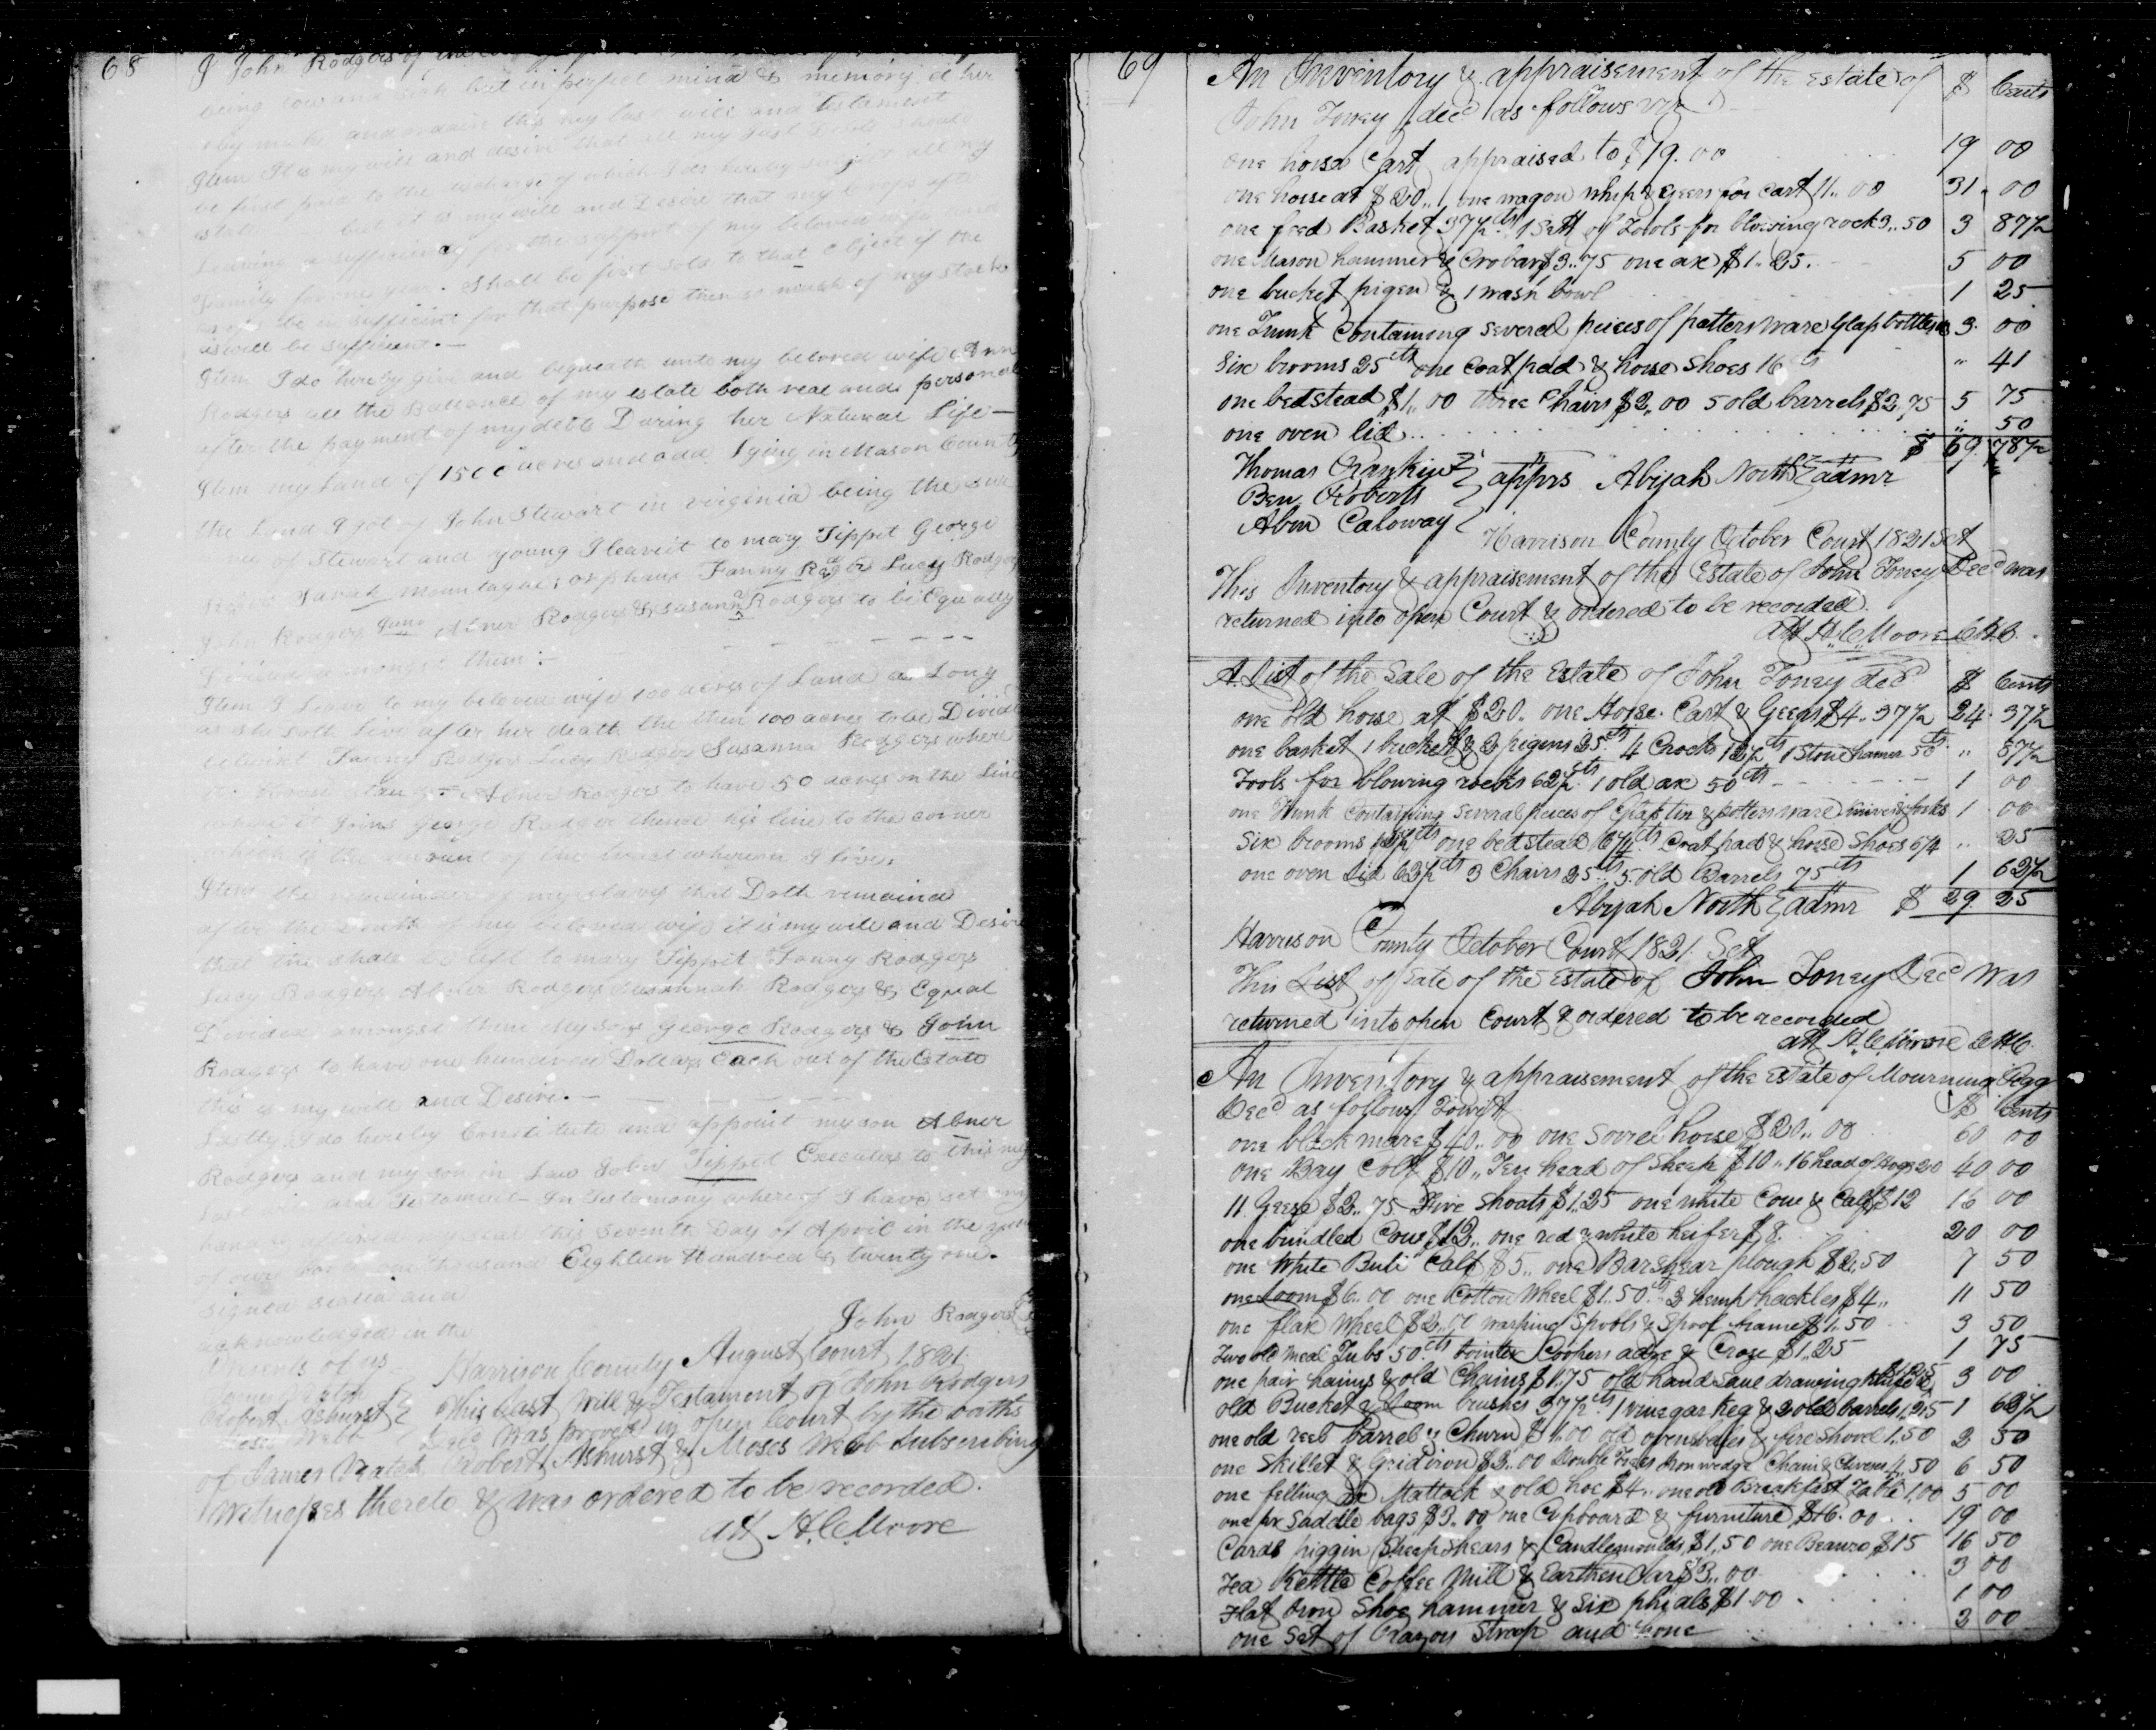 68
I John Rodgers of
being low and sick but in perfect mind & memory do her
eby make and ordain this my last will and testament
Item It is my will and desire that all my Just Debts should
be first paid to the discharge of which I do hereby subject all my
estate but it is my will and Desire that my Crops after
Leaving a sufficiency for the support of my beloved wife and
Family for one year. Shall be first sold to that object if the
crops be insufficient for that purpose then so much of my stock
as will be sufficient. —
Item I do hereby give and bequeath unto my beloved wife Ann
Rodgers all the Ballance of my estate both real and personal
after the payment of my debts During her Natural Life —
Item my Land of 1500 acres and odd lying in Mason County
the Land I got of John Stewart in virginia being the
of Stewart and young I leave it to mary Tippet George
Sarah Mountague; orphans Fanny Rodgers Lucy Rodgers
John Rodgers Junr Abner Rodgers & Susanna Rodgers to be Equally
Divided amongst them: -
Item I Leave to my beloved wife 100 acres of Land as Long
as she doth Live after her death the then 100 acres to be Divide
betwixt Fanny Rodgers Lucy Rodgers Susanna Rodgers where
the House stands - Abner Rodgers to have 50 acres on the Line
where it joins George Rodgers thence his line to the corner
which is the amount of the tract whereon I live.
Item the remainder of my slaves that Doth remained
after the Death of my beloved wife it is my will and Desire
that the shall be left to mary Tippet Fanny Rodgers
Lucy Rodgers Abner Rodgers Susannah Rodgers & Equal
Devided amongst them My sons George Rodgers & John
Rodgers to have one hundred Dollars Each out of the Estate
this is my will and Desire. —
Lastly I do hereby Constitute and appoint my son Abner
Rodgers and my son in Law John Tippet Executors to this my
Last will and Testament - In Testamony whereof I have set my
hand & affixed my seal this seventh Day of April in the year
of our Lord one thousand Eighteen Hundred & twenty one.
Signed sealed and
acknowledged in the
Presents of us
John Rodgers
James Veatch
Robert Ashurst
Moses Webb
Harrison County August Court 1821
This Last Will & Testament of John Rodgers
Decd was proved in open Court by the oaths
of James Veatch Robert Ashurst & Moses Webb Subscribing
Witnesses thereto & was ordered to be recorded.
att H. C. Moore
69
An Inventory & appraisement of the Estate of $ Cents
John Toney decd as follows viz
one horse Cart appraised to $19.00 19 00
one horse at $20.. one wagon whip & geers for cart 11..00 31 00
one feed Basket 37½ cts 1 Sett of Tools for blowing rock 3..50 3 87½
one Mason hammer & Crobar $3..75 one ax $1..25. 5 00
one bucket pigen & 1 wash bowl 1 25
one Trunk Containing several peices of potters ware Glass bottles 3. 00
Six brooms 25 cts one Coat pad & horse Shoes 16 cts " 41
one bedstead $1..00 three Chairs $2,00 5 old barrels $2,75 5 75
one oven lid .. 50
$ 69. 78½
Thomas Rankin
Ben Roberts
Abm Caloway
apprs Abijah North admr
Harrison County October Court 1821 Sct
This Inventory & appraisement of the Estate of John Toney Decd was
returned into open Court & ordered to be recorded.
att H. C. Moore CHC.
A List of the Sale of the Estate of John Toney decd $ Cents
one old horse at $20. one Horse Cart & Geers $4..37½ 24. 37½
one basket 1 bucket & 2 pigens 25 cts 4 Crocks 12½ cts 1 Stone hamer 50 cts .. 87½
Tools for blowing rocks 62½ cts 1 old ax 50 cts 1 00
one Trunk Containing several peices of Glass tin & potters ware knives & forks 1 00
Six brooms 12½ cts one bedstead 6¼ cts Coat pad & horse Shoes 6¼ .. 25
one oven lid 62½ cts 3 Chairs 25 cts 5 old Barrels 75 cts 1 62½
Abijah North admr $ 29. 25
Harrison County October Court 1821. Sct
This List of Sale of the Estate of John Toney Decd was
returned into open Court & ordered to be recorded
att H. C. Moore CHC.
An Inventory & appraisement of the Estate of Mourning Pegg
Decd as follows Towit $ Cents
one black mare $40..00 one Sorrel horse $20..00 60 00
one Bay Colt $10.. Ten head of Sheep $10.. 16 head of Hogs 20 40 00
11 Geese $2..75 Five Shoats $1.25 one white Cow & Calf $12 16 00
one brindled Cow $12.. one red & white heifer $8. 20 00
one white Bull Calf $5.. one Barshear plough $2.50 7 50
one Loom $6..00 one Cotton Wheel $1..50 cts 2 hemp hackles $4.. 11 50
one flax Wheel $2.. warping Spools & Spool frame $1..50 3 50
Two old meal Tubs 50 cts Jointer Coopers adze & Croze $1..25 1 75
one pair hames & old Chains $1.75 old hand Saw drawing knife & $1.25 3 00
old Bucket & Loom brushes 37½ cts 1 vinegar keg & 2 old barrels 1.25 1 62½
one old reel barrel & Churn $1.00 old ovens bales & fire shovel 1..50 2 50
one Skillet & Gridiron $2.00 Double Trees Iron wedge Chain & Clevises 4..50 6 50
one felling ax Mattock & old hoe $4.. one old Breakfast Table 1.00 5 00
one pr Saddle bags $3.00 one Cupboard & furniture $16.00 19 00
Cards piggin Sheep shears & Candlemoulds $1,50 one Beauro $15 16 50
Tea Kettle Coffee Mill & Earthen Jar $3..00 3 00
Flat Iron Shoe hammer & Six phials $1.00 1 00
one Set of Razors Strop and hone 3 00